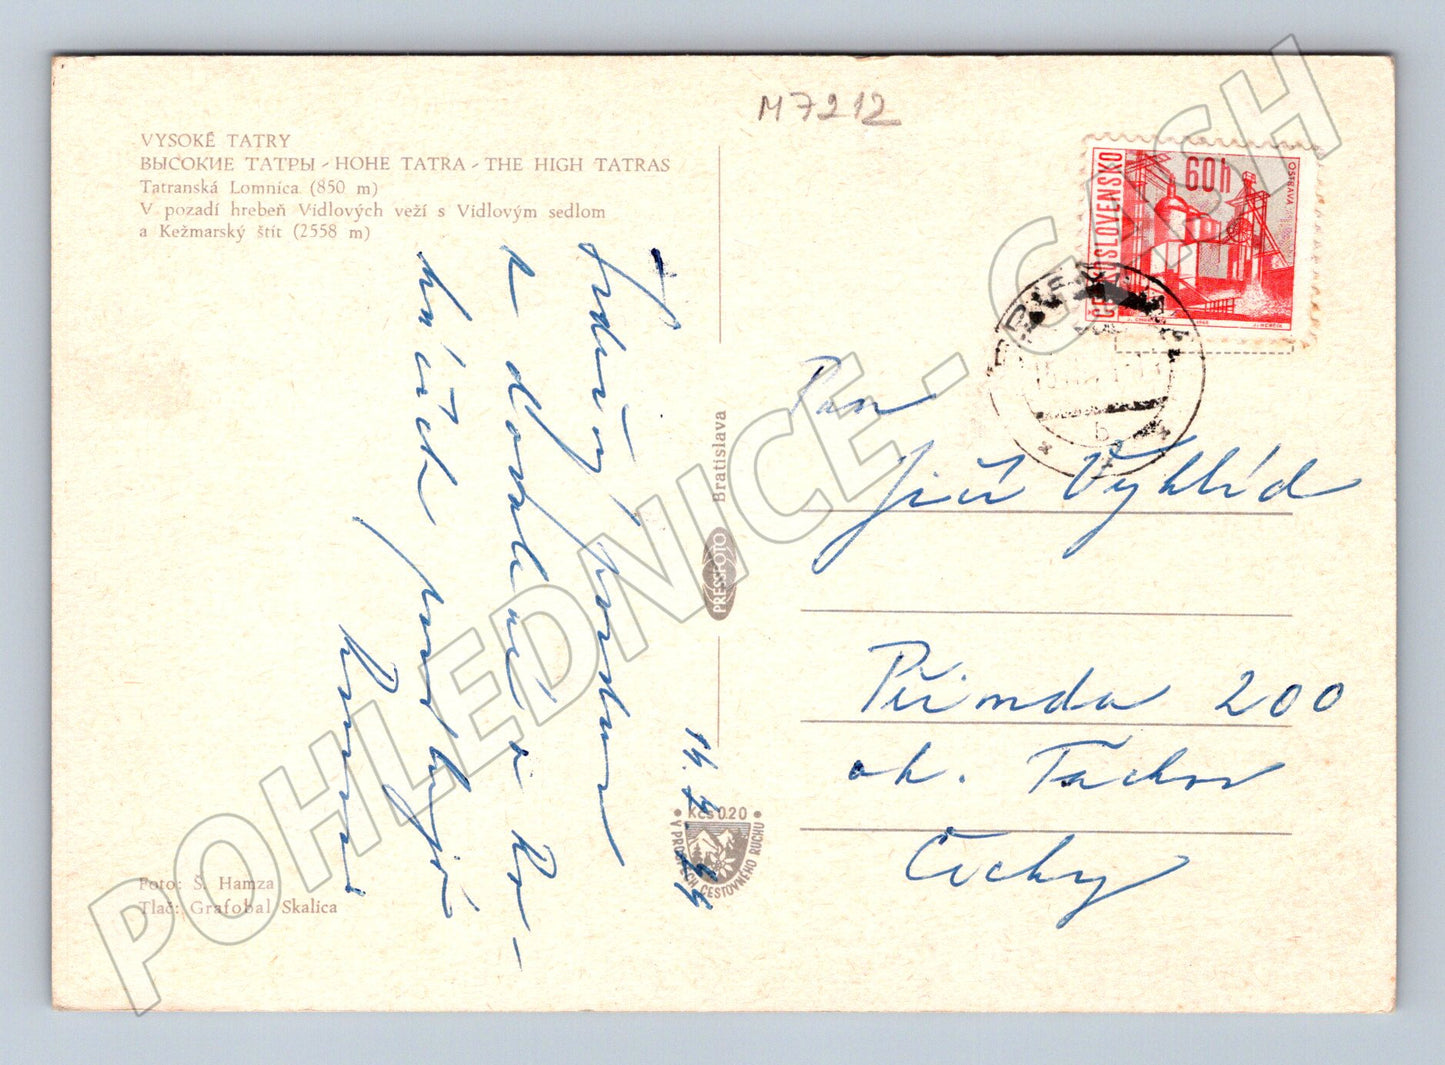 M7212
VYSOKÉ TATRY
ВЫСОКИЕ ТАТРЫ - HOHE TATRA - THE HIGH TATRAS
Tatranská Lomnica (850 m)
V pozadí hrebeň Vidlových veží s Vidlovým sedlom
a Kežmarský štít (2558 m)
Srdečný pozdrav
z dovolené v Ro-
háčích posílají
14.
Foto: Š. Hamza
Tlač: Grafobal Skalica
PRESSFOTO Bratislava
Kčs 0.20
V PROSPECH CESTOVNÉHO RUCHU
ČESKOSLOVENSKO
60h
OSTRAVA
b
Pan
Jiří Vyhlíd
Přimda 200
ok. Tachov
Čechy
POHLEDNICE - CASH